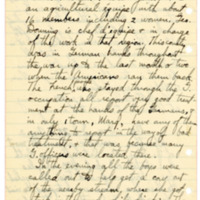 an agricultural equipe with about
16 members including 2 women, Geo.
Downing is chef d'equipe or in charge
of the work in that region. This section
was in German hands throughout
the war up to the last month or two
when the Americans ran them back.
The French who stayed through the G.
occupation all report very good treat-
ment at the hands of the Germans,
in only 1 town, have any of them
anything to report in the way of bad
treatment, & that was because many
G. officers were located there.
In the evening all the boys were
called out to help get a car out
of the nearby stream, where she got